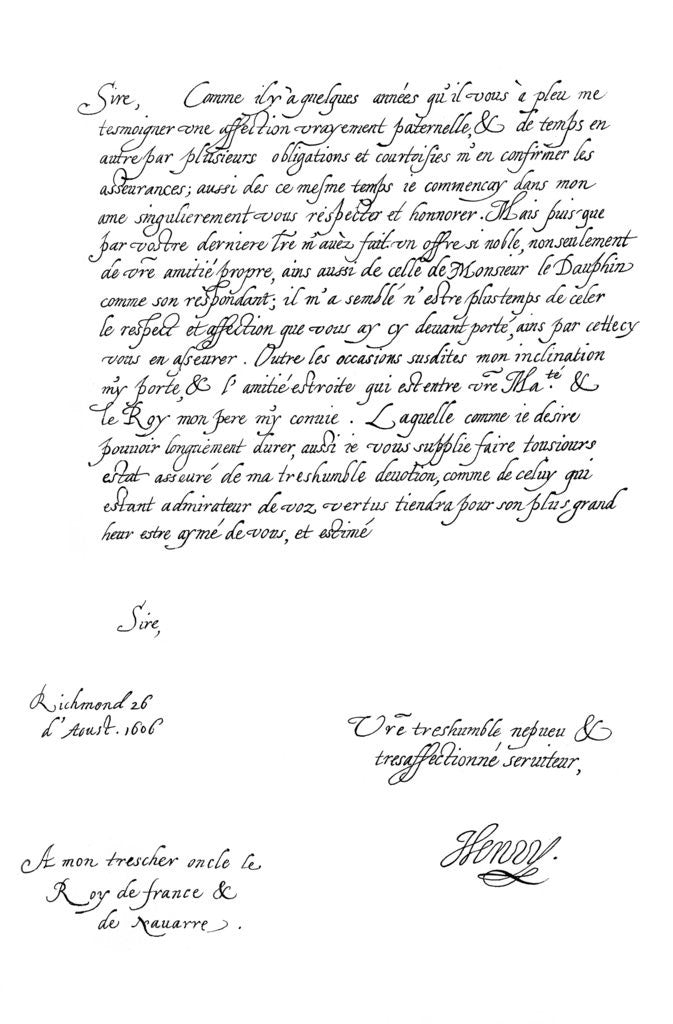 Sire, Comme il y à quelques années qu'il vous à pleu me
tesmoigner vne affection vrayement paternelle, & de temps en
autre par plusieurs obligations et courtoisies m'en confirmer les
asseurances; aussi des ce mesme temps ie commencay dans mon
ame singulierement vous respecter et honnorer. Mais puis que
par vostre derniere l̃re m'auèz fait vn offre si noble, non seulement
de vr̃e amitié propre, ains aussi de celle de Monsieur le Dauphin
comme son respondant; il m'a semblé n'estre plus temps de celer
le respect et affection que vous ay cy deuant porté, ains par cette cy
vous en asseurer. Outre les occasions susdites mon inclination
m'y porte, & l'amitié estroite qui est entre vr̃e Ma.té &
le Roy mon pere m'y conuie. Laquelle comme ie desire
pouuoir longuement durer, aussi ie vous supplie faire tousiours
estat asseuré de ma treshumble deuotion, comme de celuy qui
estant admirateur de voz vertus tiendra pour son plus grand
heur estre aymé de vous, et estimé
Sire,
Richmond 26
d'Aoust. 1606
Vr̃e treshumble nepueu &
tresaffectionné seruiteur,
Henry.
A mon trescher oncle le
Roy de france &
de Nauarre.